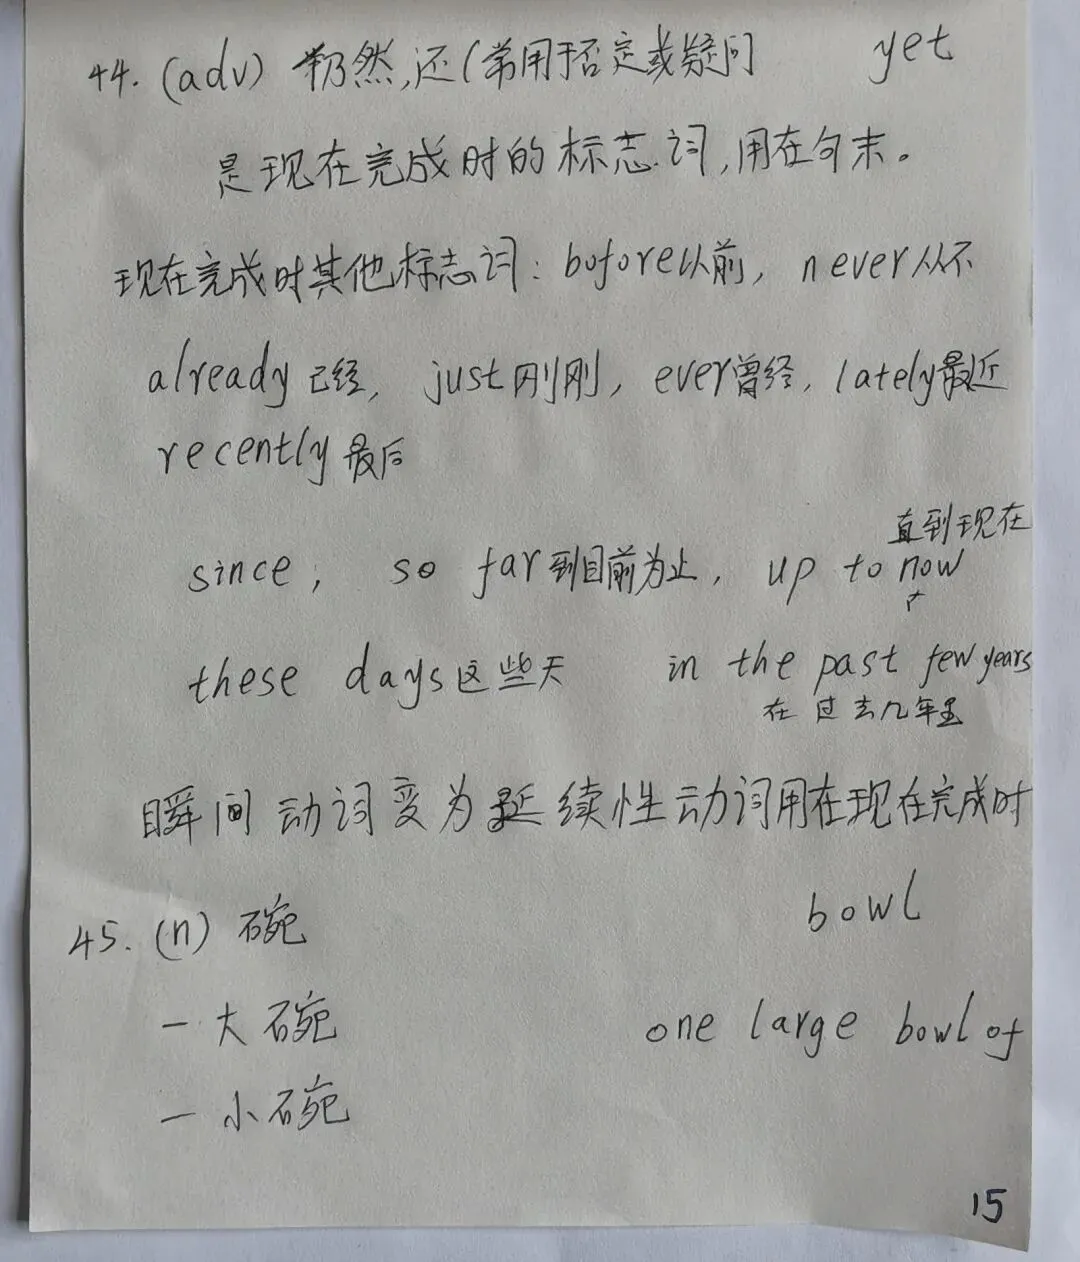 44. (adv) 仍然,还(常用于否定或疑问 yet
是现在完成时的标志词,用在句末。
现在完成时其他标志词: bofore以前, never从不
already已经, just刚刚, ever曾经, lately最近
recently最后
直到现在
since, so far到目前为止, up to now
these days这些天 in the past few years
在过去几年里
瞬间动词变为延续性动词用在现在完成时
45. (n) 碗 bowl
一大碗 one large bowl of
一小碗
15